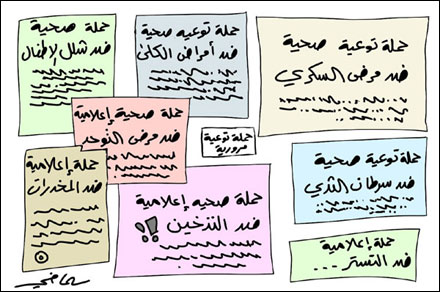 حملة توعية صحية
ضد مرض السكري
حملة توعيه صحية
ضد أمراض الكلى
حملة صحية
ضد شلل الإطفال
حملة صحية إعلامية
ضد مرض التوحد
حملة توعية
مرورية
حملة توعية صحية
ضد سرطان الثدي
حملة صحيه إعلامية
ضد التدخين !!
حملة إعلامية
ضد المخدرات
حملة إعلامية
ضد التستر ...